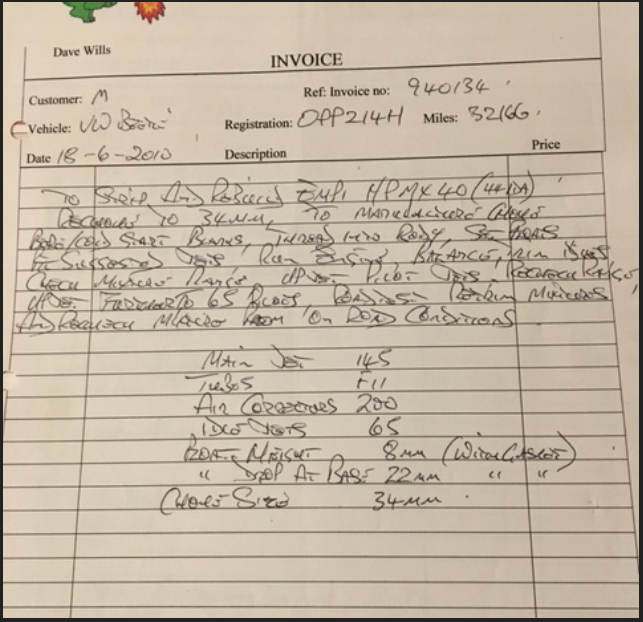 Dave Wills
INVOICE
Customer: M
Ref: Invoice no: 940134
Vehicle: VW Beetle
Registration: OPP214H
Miles: 32166
Date 18-6-2010
Description
Price
TO STRIP AND REBUILD EMPI HPMX 40 (44IDA)
TO 34MM, TO
BORE/COLD START BLANKS, THREAD INTO BODY, SET FLOATS
FIT SUGGESTED JETS, RUN ENGINE, BALANCE, TRIM IDLES
CHECK MIXTURE RANGE UPJET PILOT JETS, RECHECK RANGE
UPJET FURTHER TO 65 IDLES, ROADTEST RETRIM MIXTURES
AND RECHECK MIXTURE FROM 'ON ROAD CONDITIONS
MAIN JET 145
TUBES F11
AIR CORRECTORS 200
IDLE JETS 65
FLOAT HEIGHT 8MM (WITH GASKET)
" DROP AT BASE 22MM " "
CHOKE SIZE 34MM